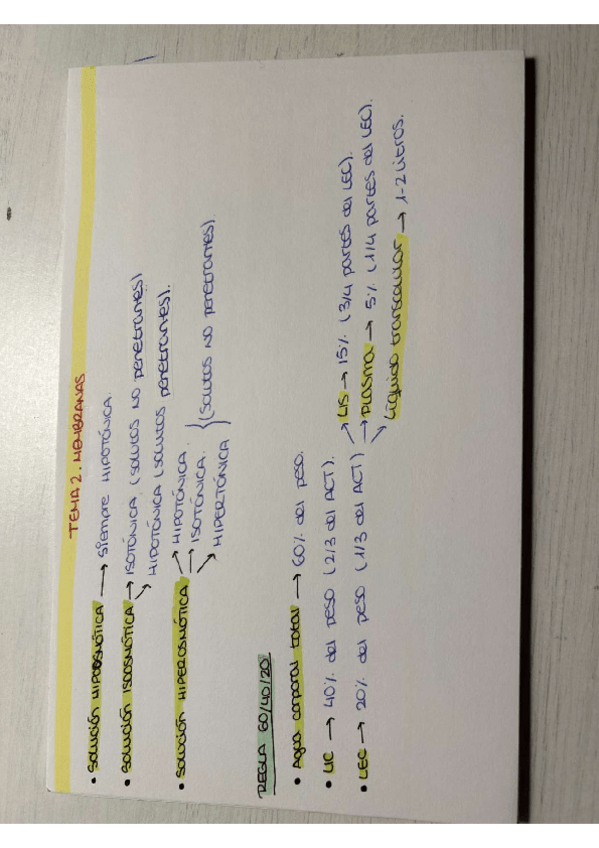 TEMA 2. MEMBRANAS
• SOLUCIÓN HIPOOSMÓTICA → Siempre HIPOTÓNICA.
• SOLUCIÓN ISOOSMÓTICA → ISOTÓNICA (solutos no penetrantes)
→ HIPOTÓNICA (solutos penetrantes).
• SOLUCIÓN HIPEROSMÓTICA → HIPOTÓNICA.
→ ISOTÓNICA. } (Solutos no penetrantes)
→ HIPERTÓNICA
REGLA 60/40/20
• Agua corporal total → 60% del peso.
• LIC → 40% del peso (2/3 del ACT).
• LEC → 20% del peso (1/3 del ACT)
→ LIS → 15% (3/4 partes del LEC).
→ PLASMA → 5% (1/4 partes del LEC).
→ Líquido transcelular → 1-2 Litros.